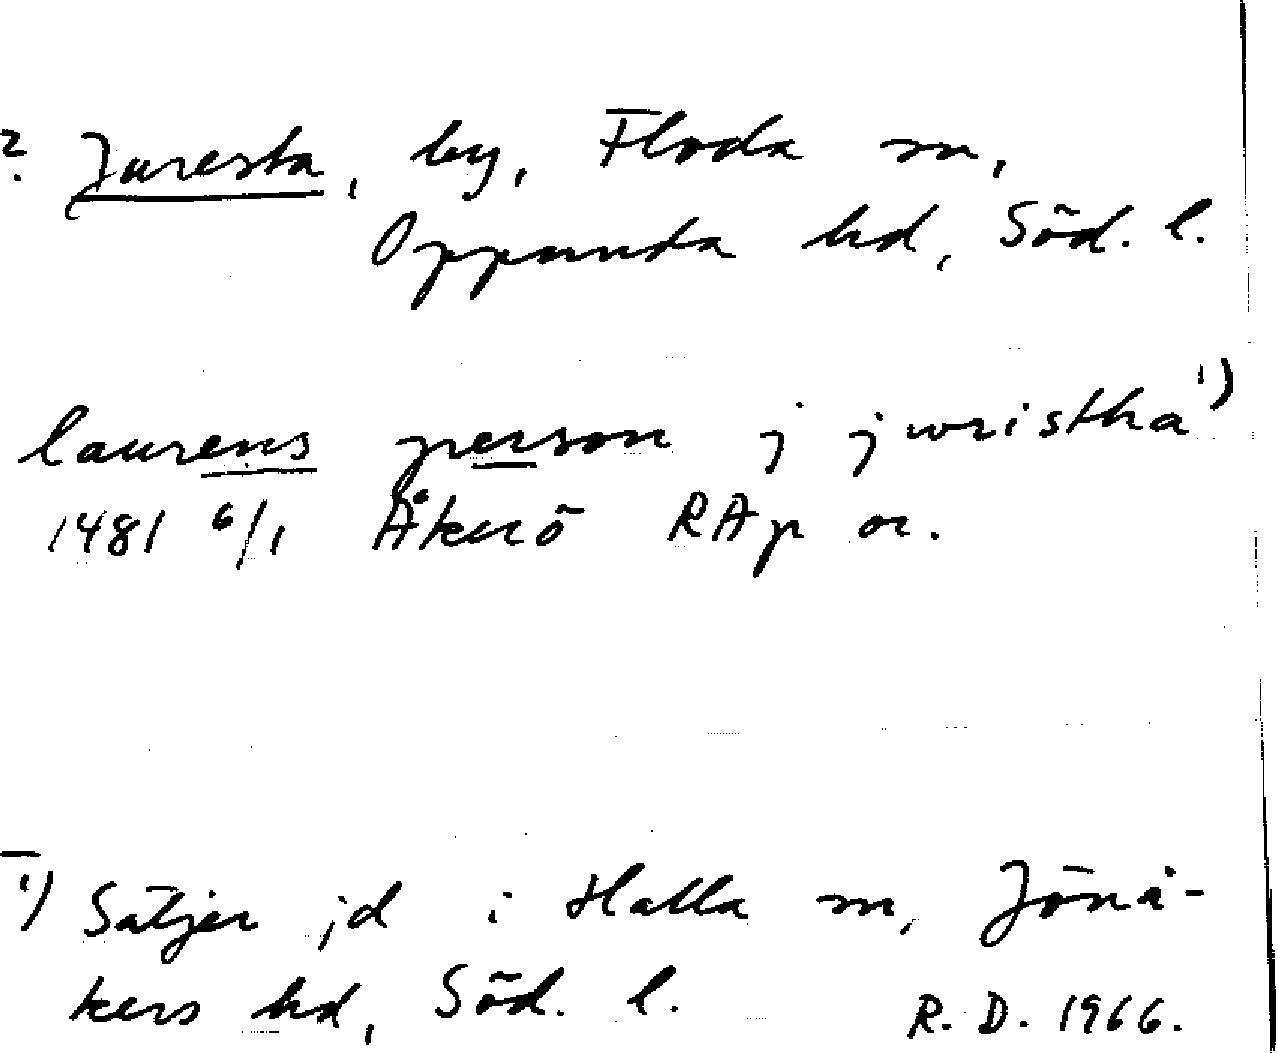 ? Juresta, by, Floda sn,
Oppunda hd, Söd. l.
laurens person j jwristha 1)
1481 6/1 Åkerö RAp or.
1) Säljer jd i Halla sn, Jönå-
kers hd, Söd. l. R. D. 1966.